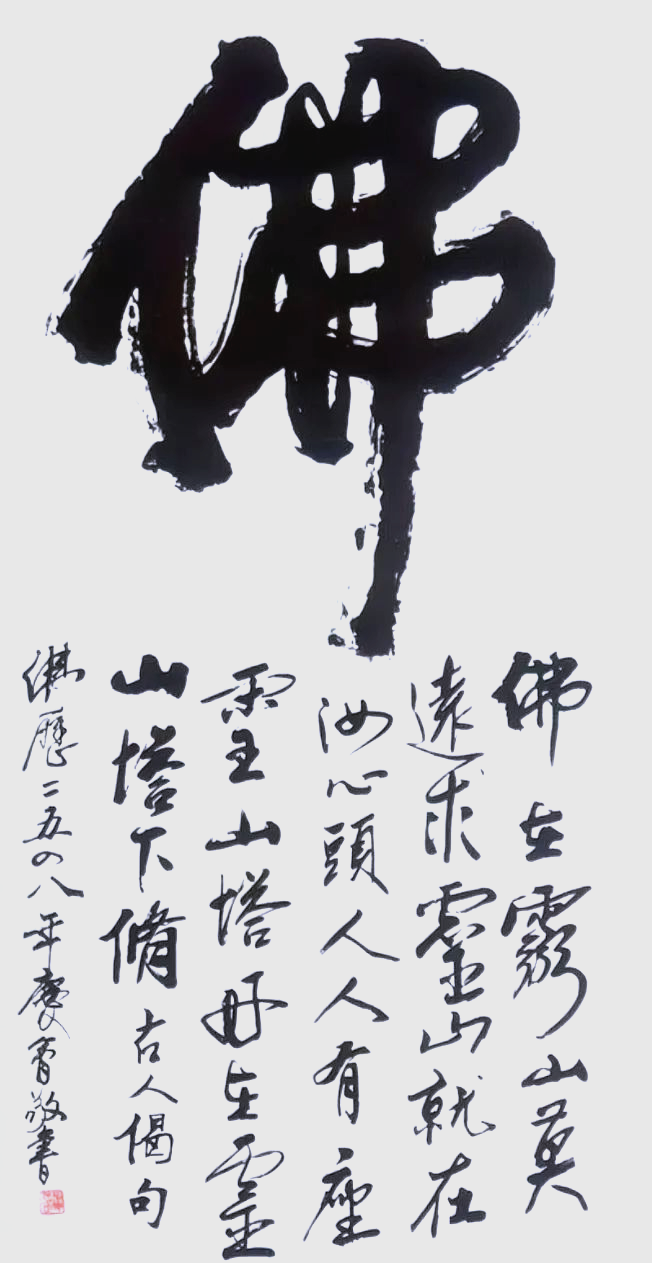 佛
佛在靈山莫
遠求靈山就在
汝心頭人人有座
靈山塔好在靈
山塔下脩古人偈句
佛曆二五〇八年慶育敬書